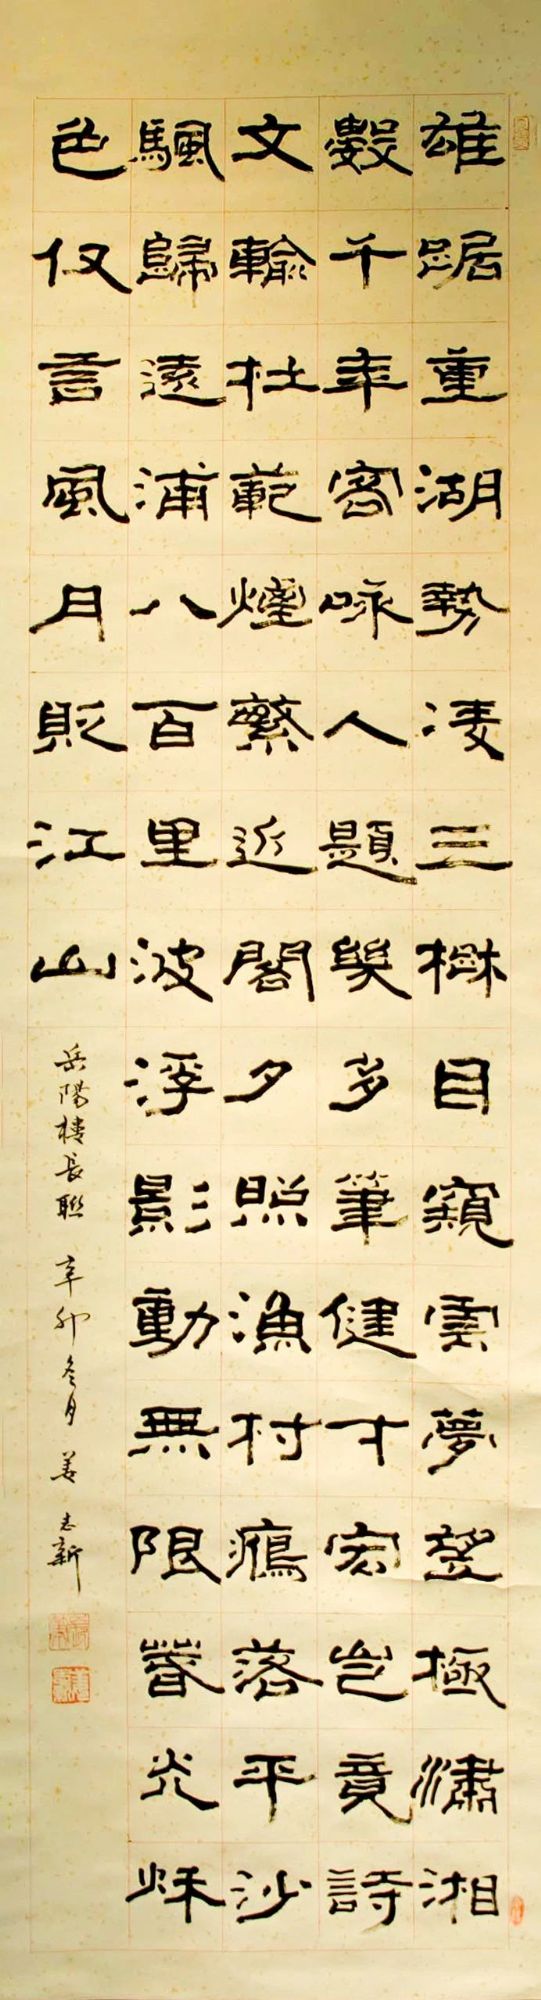 雄踞重湖勢凌三楚目窺雲夢望極瀟湘
數千年客咏人題幾多筆健才宏豈竟詩
文輸杜範煙縈近閣夕照漁村鴈落平沙
颿歸遠浦八百里波浮影動無限春光秌
色仅言風月貶江山
岳陽樓長聯 辛卯冬月 姜志新